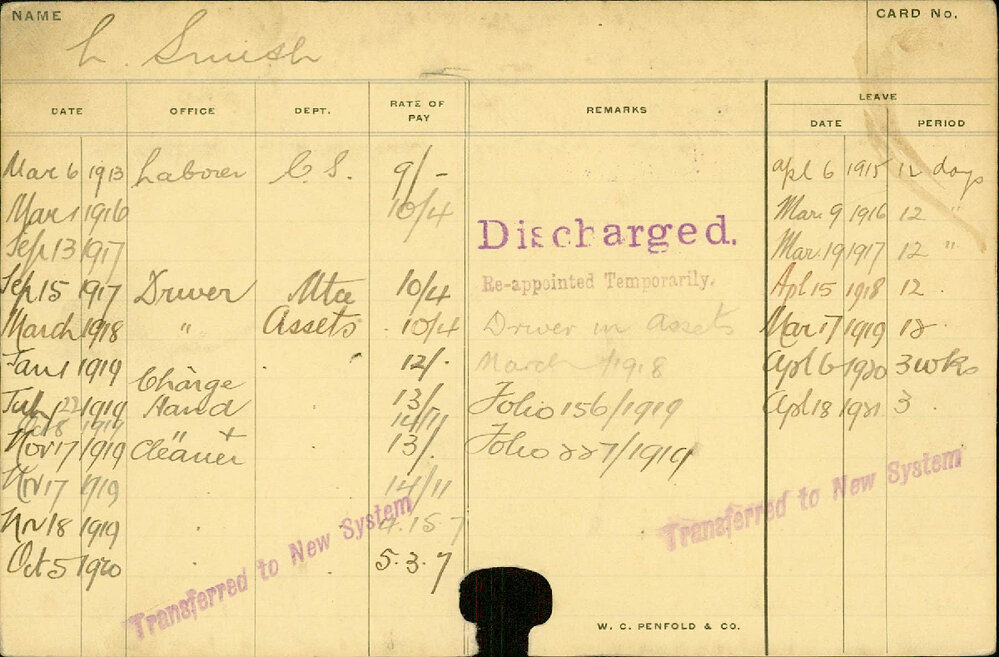 NAME
CARD No.
L. Smith
DATE OFFICE DEPT. RATE OF PAY REMARKS LEAVE
DATE PERIOD
Mar 6 1913 Laborer C S. 9/- Apl 6 1915 12 days
Mar 1 1916 10/4 Mar. 9 1916 12 "
Discharged.
Sep 13 1917 Mar. 19 1917 12 "
Sep 15 1917 Driver Mtce 10/4 Re-appointed Temporarily. Apl 15 1918 12 .
March 1918 " Assets . 10/4 Driver in Assets Mar 17 1919 12 .
Jan 1 1919 12/- March 1918 Apl 6 1920 3 wks
Charge
July 22 1919 Hand 13/- Folio 156/1919 Apl 18 1921 3 .
Oct 8 1919 14/11
Nov 17 1919 " + Cleaner 13/. Folio 227/1919
Nov 17 1919 14/11
Nov 18 1919 4.15.7
Oct 5 1920 5.3.7
Transferred to New System
Transferred to New System
W. C. PENFOLD & CO.